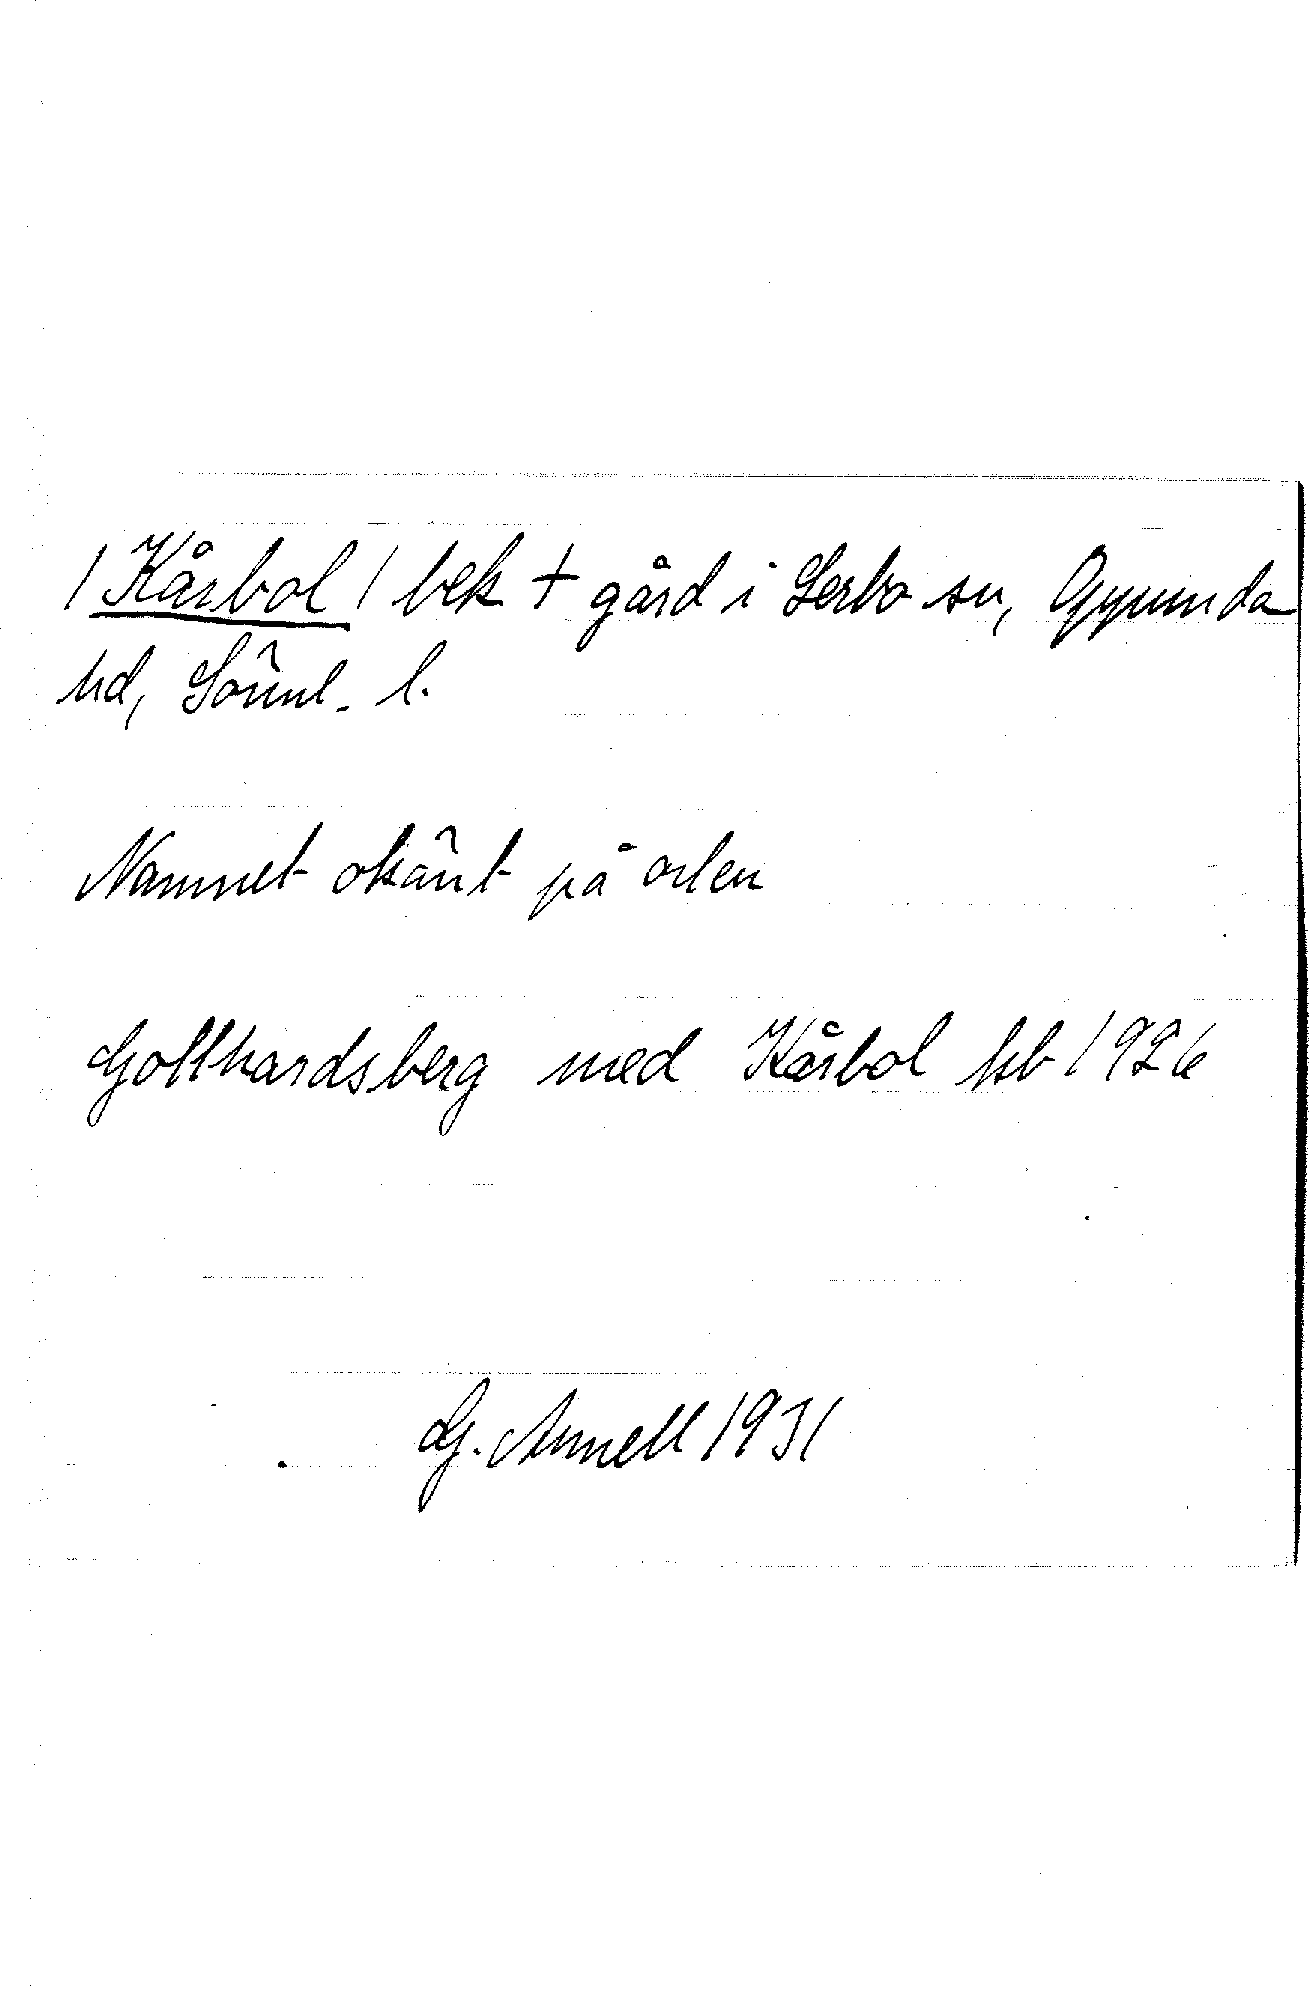 / Kårbol / bek + gård i Lerbo sn, Oppunda
hd, Söml. l.
Namnet okänt på orten
Gotthardsberg med Kårbol jsb 1926
G. Annell 1931